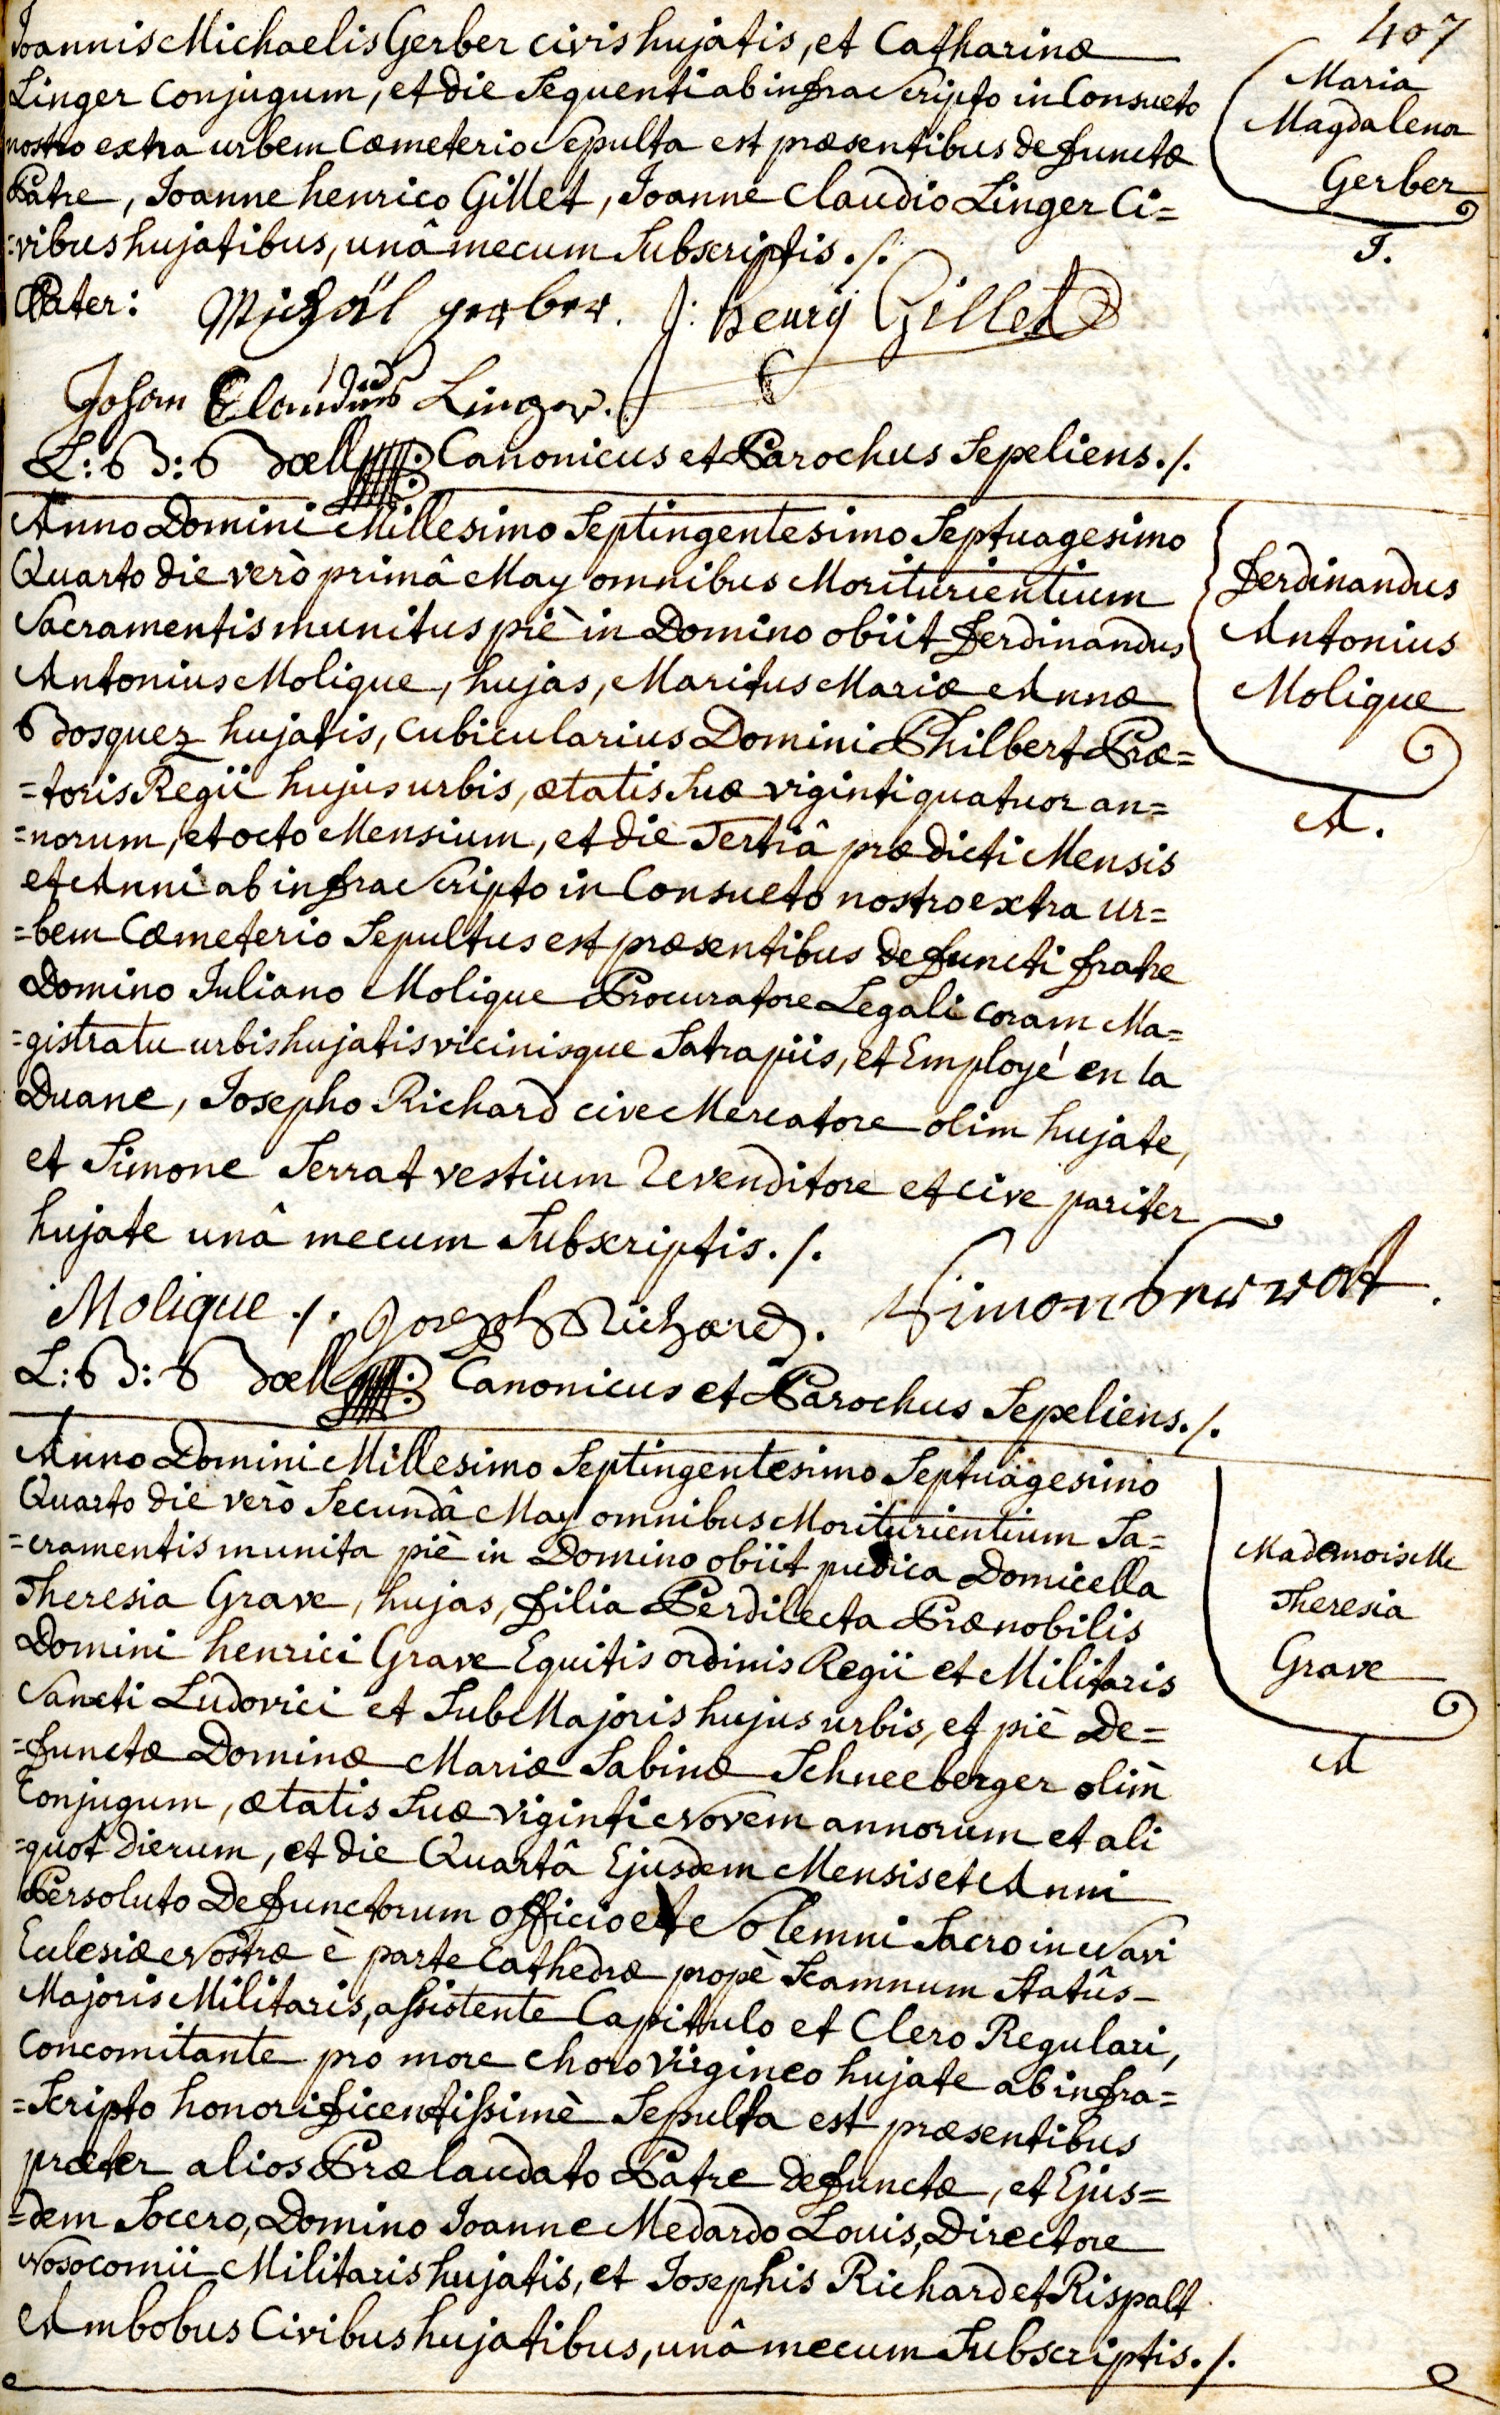 407
Joannis Michaelis Gerber civis hujatis, et Catharinæ
Linger Conjugum, et die Sequenti ab infra Scripto in Consueto
nostro extra urbem Cœmeterio Sepulta est præsentibus defunctæ
Patre, Joanne henrico Gillet, Joanne Claudio Linger Ci=
=vibus hujatibus, unâ mecum Subscriptis ./.
Maria
Magdalena
Gerber
J.
Pater: Michäl gerber. J: henry Gillet
Johan Claudius Linger.
Canonicus et Parochus Sepeliens ./.
Anno Domini Millesimo Septingentesimo Septuagesimo
Quarto die verò primâ May omnibus Moriturientium
Sacramentis munitus piè in Domino obiit Ferdinandus
Antonius Molique, hujas, Maritus Mariæ Annæ
Bosquez hujatis, Cubicularius Domini Philbert Præ=
=toris Regii hujus urbis, ætatis Suæ viginti quatuor an=
=norum, et octo Mensium, et die Tertiâ prædicti Mensis
et Anni ab infra Scripto in Consueto nostro extra ur=
=bem Cœmeterio Sepultus est præsentibus defuncti fratre
Domino Juliano Molique Procuratore Legali coram Ma=
=gistratu urbis hujatis vicinisque Satrapiis, et Employé en la
Duane, Josepho Richard cive Mercatore olim hujate,
et Simone Serrat vestium Revenditore et cive pariter
hujate unâ mecum Subscriptis ./.
Ferdinandus
Antonius
Molique
A.
Molique ./. Joseph Richard. Simon
Canonicus et Parochus Sepeliens ./.
Anno Domini Millesimo Septingentesimo Septuagesimo
Quarto die verò Secundâ May omnibus Moriturientium Sa=
=cramentis munita piè in Domino obiit pudica Domicella
Theresia Grave, hujas, filia Perdilecta Prænobilis
Domini henrici Grave Equitis ordinis Regii et Militaris
Sancti Ludovici et Sub Majoris hujus urbis, et piè De=
=functæ Dominæ Mariæ Sabinæ Schneeberger olim
Conjugum, ætatis Suæ viginti Novem annorum et ali
=quot dierum, et die Quartâ Ejusdem Mensis et Anni
Persoluto Defunctorum officio et Solemni Sacro in Navi
Eclesiæ Nostræ è parte Cathedræ propè Scamnum Statûs-
Majoris Militaris, assistente Capitulo et Clero Regulari,
Concomitante pro more choro Virgineo hujate ab infra=
=Scripto honorificentissimè Sepulta est præsentibus
præter alios Prælaudato Patre defunctæ, et Ejus=
=dem Socero, Domino Joanne Medardo Louis, Directore
Nosocomii Militaris hujatis, et Josephis Richard et Rispalt
Ambobus Civibus hujatibus, unâ mecum Subscriptis ./.
Mademoiselle
Theresia
Grave
A